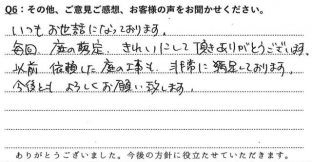 Q6：その他、ご意見ご感想、お客様の声をお聞かせください。
いつもお世話になっております。
毎回 庭の剪定 きれいにして頂きありがとうございます。
以前 依頼した庭の工事も、非常に満足しております。
今後とも よろしくお願い致します。
ありがとうございました。今後の方針に役立たせていただきます。